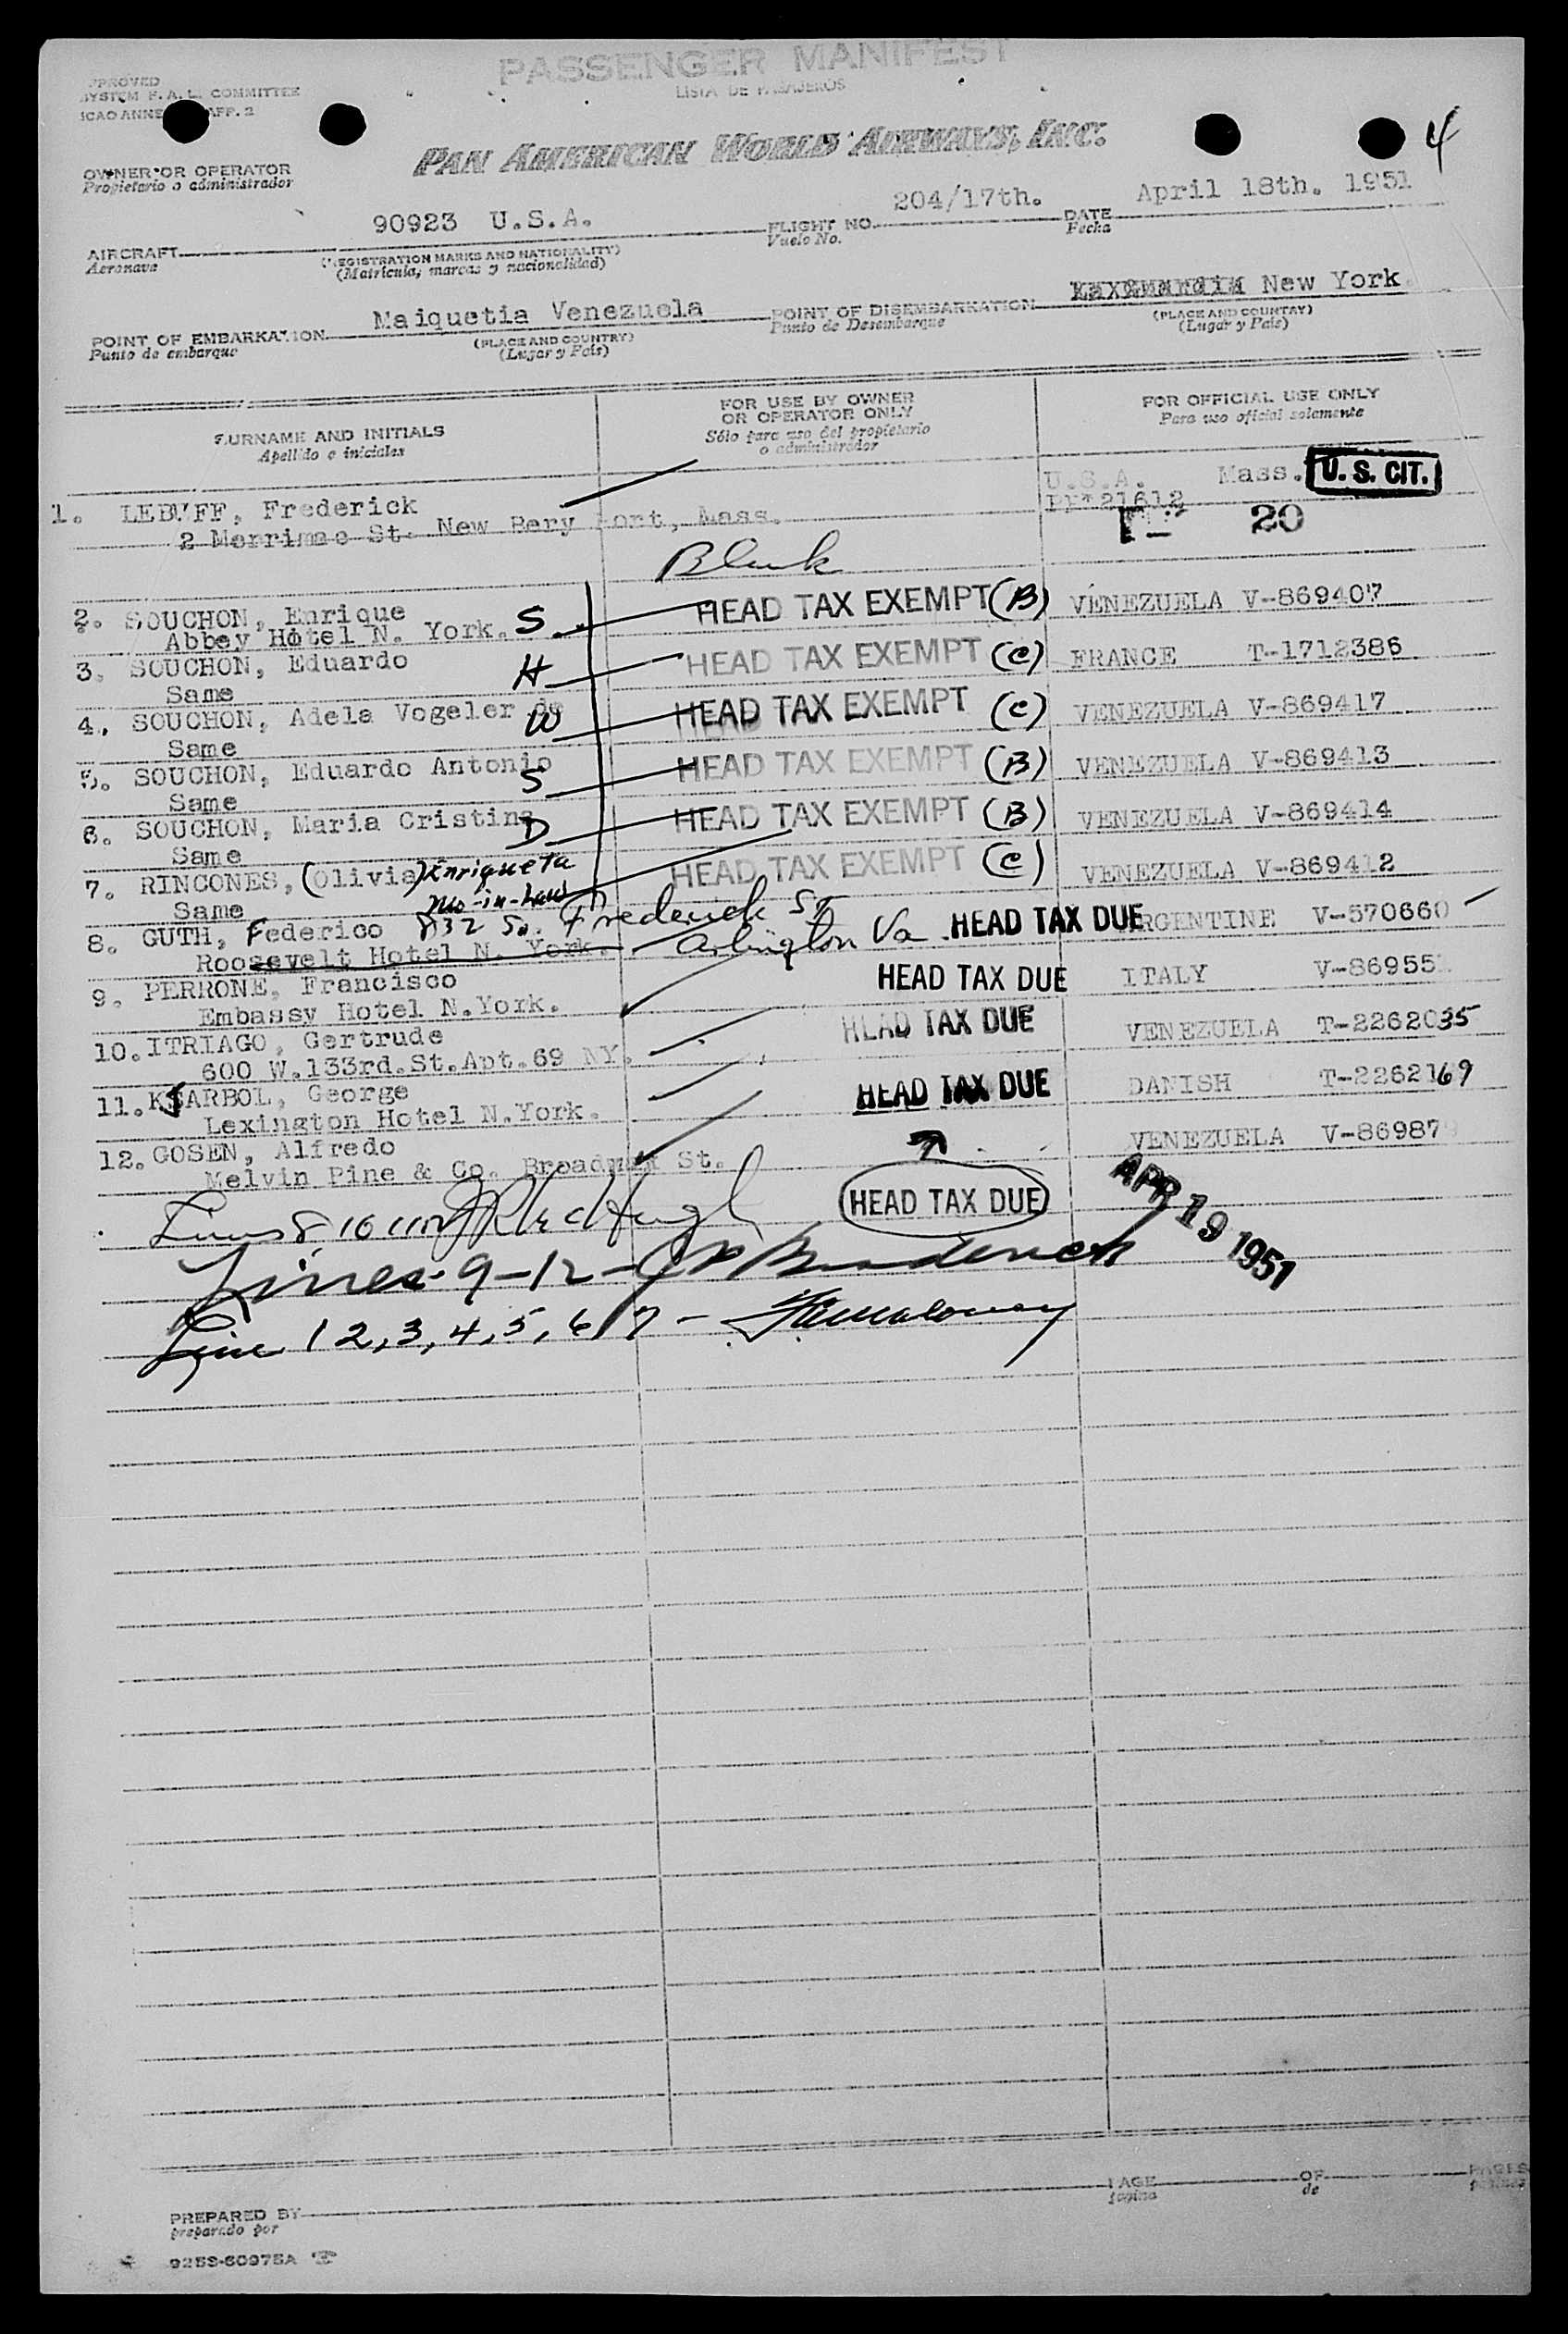 PASSENGER MANIFEST
LISTA DE PASAJEROS
SYSTEM F. A. L. COMMITTEE
4
PAN AMERICAN WORLD AIRWAYS, INC.
OWNER OR OPERATOR
Propietario o administrador
AIRCRAFT 90923 U.S.A. FLIGHT NO. 204/17th. DATE April 18th. 1951
Aeronave Vuelo No. Fecha
(REGISTRATION MARKS AND NATIONALITY)
(Matrícula, marcas y nacionalidad)
POINT OF EMBARKATION Maiquetia Venezuela POINT OF DISEMBARKATION New York
Punto de embarque Punto de Desembarque
(PLACE AND COUNTRY) (PLACE AND COUNTRY)
(Lugar y País) (Lugar y País)
SURNAME AND INITIALS FOR USE BY OWNER OR OPERATOR ONLY FOR OFFICIAL USE ONLY
Apellido e iniciales Sólo para uso del propietario o administrador Para uso oficial solamente
1. LEBUFF, Frederick U.S.A. Mass. U. S. CIT.
2 Merrimac St. New Bery Port, Mass. 21612
20
2. SOUCHON, Enrique S HEAD TAX EXEMPT (B) VENEZUELA V-869407
Abbey Hotel N. York.
3. SOUCHON, Eduardo H HEAD TAX EXEMPT (C) FRANCE T-1712386
Same
4. SOUCHON, Adela Vogeler de W HEAD TAX EXEMPT (C) VENEZUELA V-869417
Same
5. SOUCHON, Eduardo Antonio S HEAD TAX EXEMPT (B) VENEZUELA V-869413
Same
6. SOUCHON, Maria Cristina D HEAD TAX EXEMPT (B) VENEZUELA V-869414
Same
7. RINCONES, (Olivia) Enriqueta HEAD TAX EXEMPT (C) VENEZUELA V-869412
Same -in-Law
8. GUTH, Federico 832 So. Frederick St HEAD TAX DUE ARGENTINE V-570660
Roosevelt Hotel N. York. Arlington Va.
9. PERRONE, Francisco HEAD TAX DUE ITALY V-86955
Embassy Hotel N.York.
10. ITRIAGO, Gertrude HEAD TAX DUE VENEZUELA T-2262035
600 W.133rd.St.Apt.69 NY.
11. KJARBOL, George HEAD TAX DUE DANISH T-2262169
Lexington Hotel N.York.
12. GOSEN, Alfredo VENEZUELA V-86987
Melvin Pine & Co. Broadway St.
HEAD TAX DUE
APR 19 1951
Lines 9-12 -
Line 1 2, 3, 4, 5, 6, 7 -
PREPARED BY PAGE OF PAGES
preparado por página de
9253-60975A